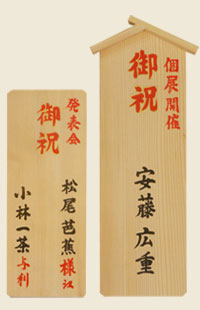 個展開催
御祝
安藤広重
発表会
御祝
松尾芭蕉様江
小林一茶与利